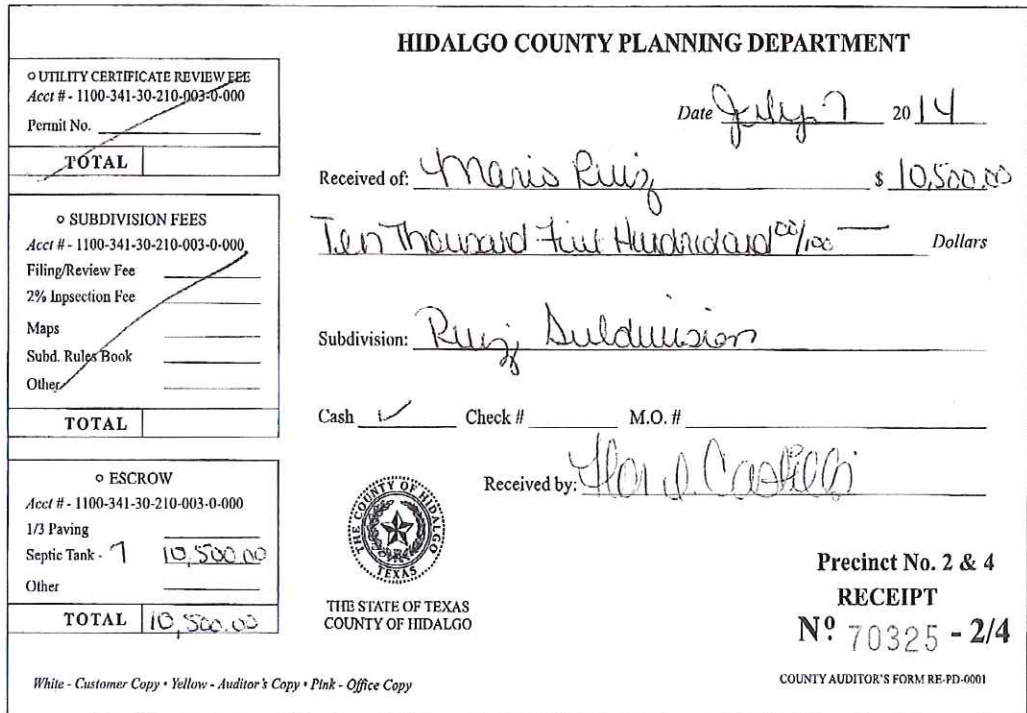 HIDALGO COUNTY PLANNING DEPARTMENT
○ UTILITY CERTIFICATE REVIEW FEE
Acct # - 1100-341-30-210-003-0-000
Permit No.
TOTAL
○ SUBDIVISION FEES
Acct # - 1100-341-30-210-003-0-000
Filing/Review Fee
2% Inpsection Fee
Maps
Subd. Rules Book
Other
TOTAL
○ ESCROW
Acct # - 1100-341-30-210-003-0-000
1/3 Paving
Septic Tank - 7 10,500.00
Other
TOTAL 10,500.00
Date July 7 2014
Received of: Mario Ruiz $ 10,500.00
Ten Thousand Five Hundred and 00/100 — Dollars
Subdivision: Ruiz Subdivision
Cash ✓ Check # M.O. #
Received by: Flor D. Castillo
THE COUNTY OF HIDALGO
TEXAS
THE STATE OF TEXAS
COUNTY OF HIDALGO
Precinct No. 2 & 4
RECEIPT
Nº 70325 - 2/4
White - Customer Copy • Yellow - Auditor's Copy • Pink - Office Copy
COUNTY AUDITOR'S FORM RE-PD-0001